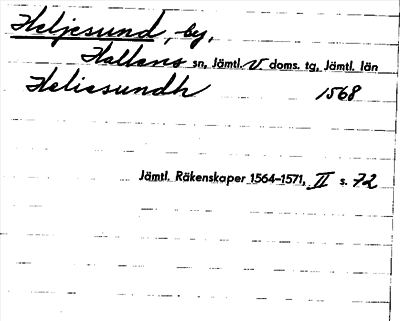 Heljesund, by,
Hallens sn, Jämtl. V doms. tg, Jämtl. län
Heliesundh 1568
Jämtl. Räkenskaper 1564–1571, II s. 72